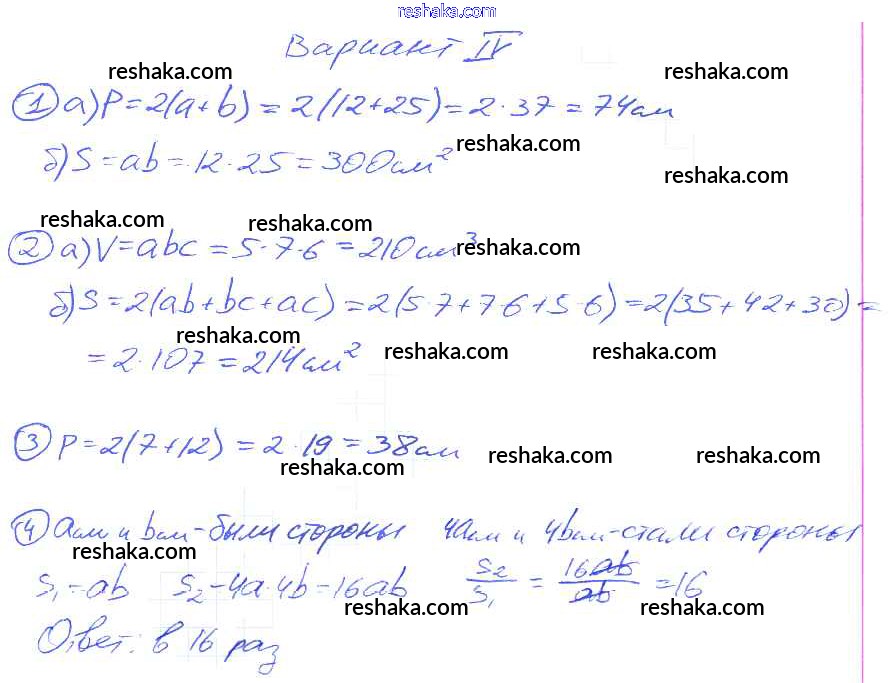 reshaka.com
Вариант IV
reshaka.com reshaka.com
1 а) P = 2(a+b) = 2(12+25) = 2·37 = 74 см
reshaka.com
б) S = ab = 12·25 = 300 см²
reshaka.com
reshaka.com reshaka.com
2 а) V = abc = 5·7·6 = 210 см³
reshaka.com
б) S = 2(ab+bc+ac) = 2(5·7+7·6+5·6) = 2(35+42+30) =
reshaka.com
= 2·107 = 214 см²
reshaka.com reshaka.com
3 P = 2(7+12) = 2·19 = 38 см
reshaka.com reshaka.com reshaka.com
4 a см и b см - были стороны 4a см и 4b см - стали стороны
reshaka.com
S₁ = ab S₂ - 4a·4b = 16ab S₂/S₁ = 16ab/ab = 16
reshaka.com reshaka.com
Ответ: в 16 раз